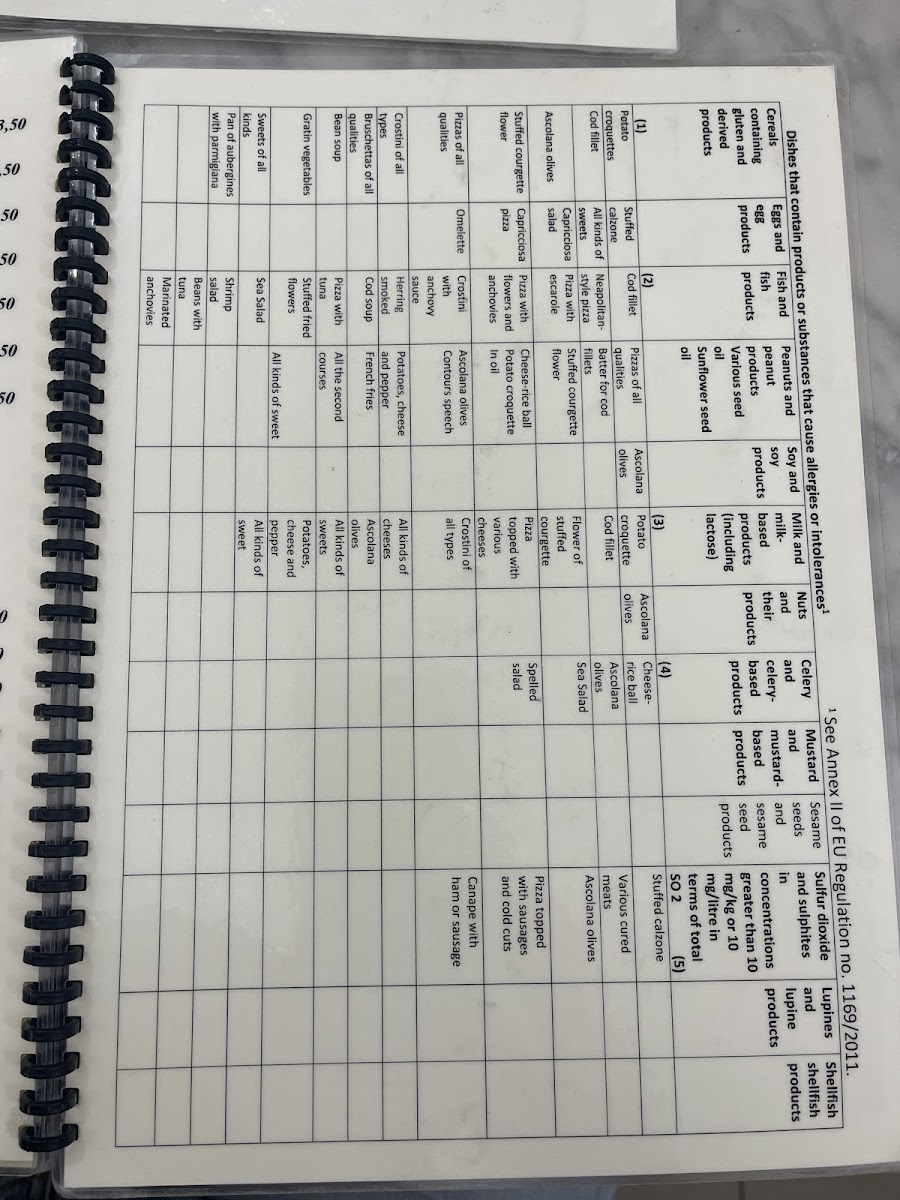 Dishes that contain products or substances that cause allergies or intolerances¹
Cereals
containing
gluten and
derived
products
(1)
Eggs and
egg
products
Fish and
fish
products
(2)
Peanuts and
peanut
products
Various seed
oil
Sunflower seed
oil
Soy and
soy
products
Milk and
milk-
based
products
(including
lactose)
(3)
Nuts
and
their
products
Celery
and
celery-
based
products
(4)
Mustard
and
mustard-
based
products
Sesame
seeds
and
sesame
seed
products
Sulfur dioxide
and sulphites
in
concentrations
greater than 10
mg/kg or 10
mg/litre in
terms of total
SO 2 (5)
Lupines
and
lupine
products
Shellfish
shellfish
products
Potato
croquettes
Stuffed
calzone
Cod fillet
Pizzas of all
qualities
Ascolana
olives
Potato
croquette
Ascolana
olives
Cheese-
rice ball
Stuffed calzone
Cod fillet
All kinds of
sweets
Neapolitan-
style pizza
Batter for cod
fillets
Cod fillet
Ascolana
olives
Various cured
meats
Ascolana olives
Capricciosa
salad
Pizza with
escarole
Stuffed courgette
flower
Flower of
stuffed
courgette
Sea Salad
Ascolana olives
Stuffed courgette
flower
Capricciosa
pizza
Pizza with
flowers and
anchovies
Cheese-rice ball
Potato croquette
In oil
Pizza
topped with
various
cheeses
Spelled
salad
Pizza topped
with sausages
and cold cuts
Pizzas of all
qualities
Omelette
Crostini
with
anchovy
sauce
Ascolana olives
Contours speech
Crostini of
all types
Canape with
ham or sausage
Crostini of all
types
Herring
smoked
Potatoes, cheese
and pepper
All kinds of
cheeses
Bruschettas of all
qualities
Cod soup
French fries
Ascolana
olives
Bean soup
Pizza with
tuna
All the second
courses
All kinds of
sweets
Gratin vegetables
Stuffed fried
flowers
All kinds of sweet
Potatoes,
cheese and
pepper
Sweets of all
kinds
Sea Salad
All kinds of
sweet
Pan of aubergines
with parmigiana
Shrimp
salad
Beans with
tuna
Marinated
anchovies
¹ See Annex II of EU Regulation no. 1169/2011.